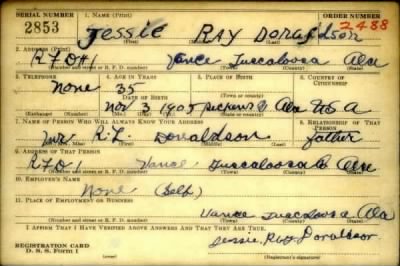 SERIAL NUMBER 1. NAME (Print) ORDER NUMBER
2853 Jessie RAY Donaldson 2488
(First) (Middle) (Last)
2. ADDRESS (Print)
RFD#1 Vance Tuscaloosa Ala
(Number and street or R. F. D. number) (Town) (County) (State)
3. TELEPHONE 4. AGE IN YEARS 5. PLACE OF BIRTH 6. COUNTRY OF CITIZENSHIP
None 35
DATE OF BIRTH (Town or county)
Nov 3 1905 Pickens Co Ala U S A
(Exchange) (Number) (Mo.) (Day) (Yr.) (State or country)
7. NAME OF PERSON WHO WILL ALWAYS KNOW YOUR ADDRESS 8. RELATIONSHIP OF THAT PERSON
Mr R.L. Donaldson father
(Mr., Mrs., Miss) (First) (Middle) (Last)
9. ADDRESS OF THAT PERSON
RFD1 Vance Tuscaloosa Co Ala
(Number and street or R. F. D. number) (Town) (County) (State)
10. EMPLOYER'S NAME
None (Self)
11. PLACE OF EMPLOYMENT OR BUSINESS
Vance Tuscaloosa Ala
(Number and street or R. F. D. number) (Town) (County) (State)
I AFFIRM THAT I HAVE VERIFIED ABOVE ANSWERS AND THAT THEY ARE TRUE.
REGISTRATION CARD Jessie Ray Donaldson
D. S. S. Form 1 (Registrant's signature)